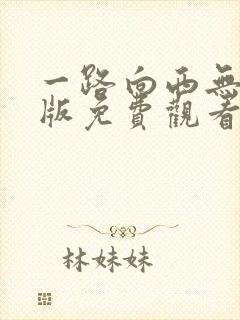 一路向西無
版免費觀看
林妹妹